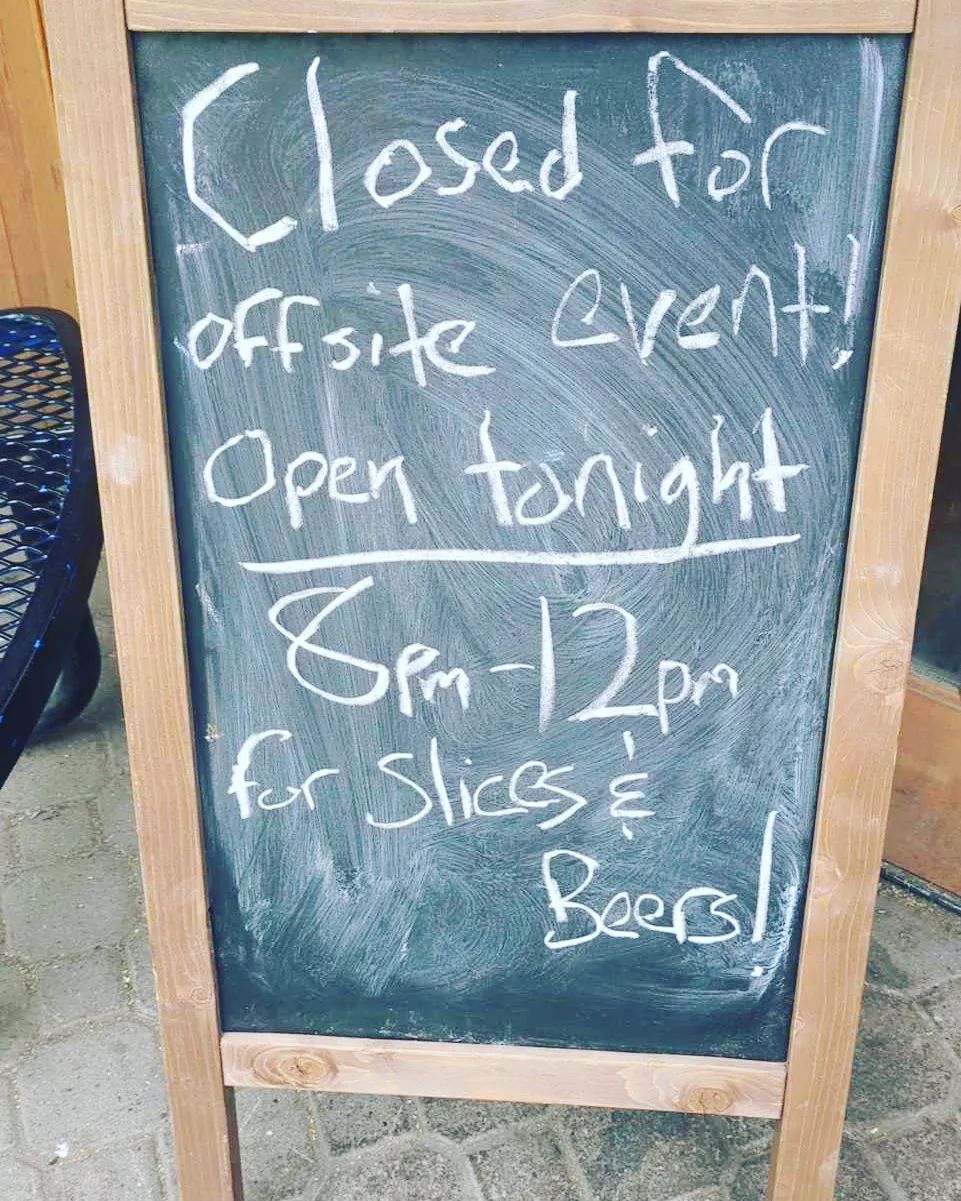 Closed for
offsite event!
Open tonight
8pm-12pm
for Slices &
Beers!